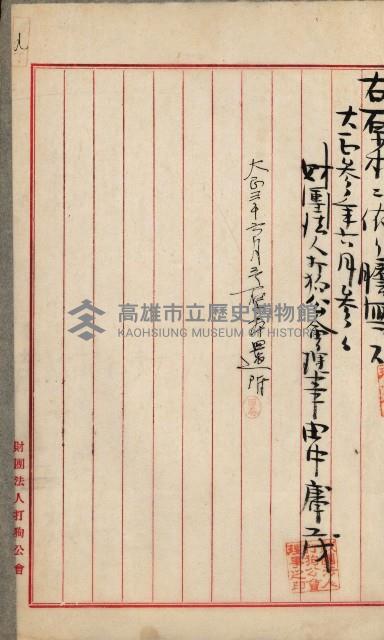 右原本ニ依リ謄寫ス
大正参年六月参日
財團法人打狗公會理事田中庫茂
大正三年六月三日
還附
高雄市立歷史博物館
KAOHSIUNG MUSEUM OF HISTORY
財團法人打狗公會